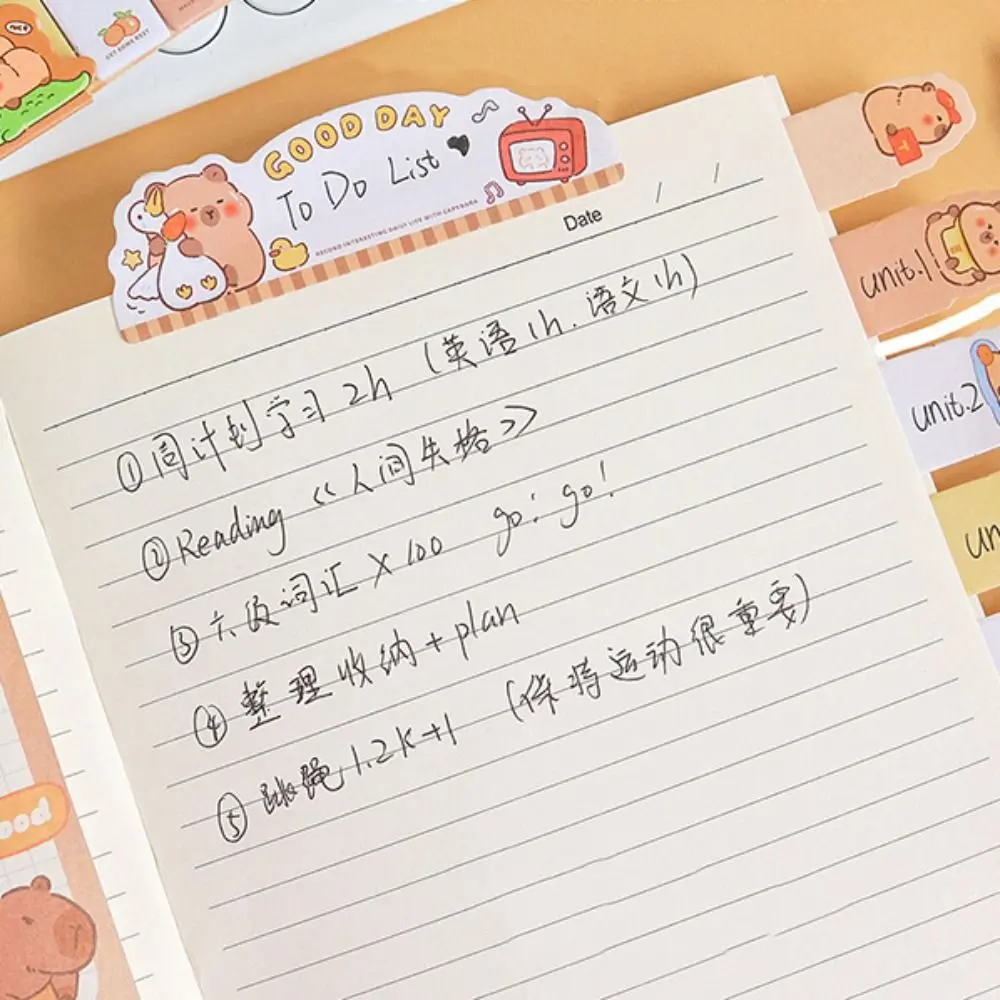 nice
GET SOME REST
GOOD DAY
To Do List
RECORD INTERESTING DAILY LIFE WITH CAPYBARA
Date / /
①周计划学习 2h (英语1h.语文1h)
②Reading 《人间失格》
③六级词汇×100 go! go!
④整理收纳+plan
⑤跳绳1.2k+1 (保持运动很重要)
unit.1
unit.2
un
ood